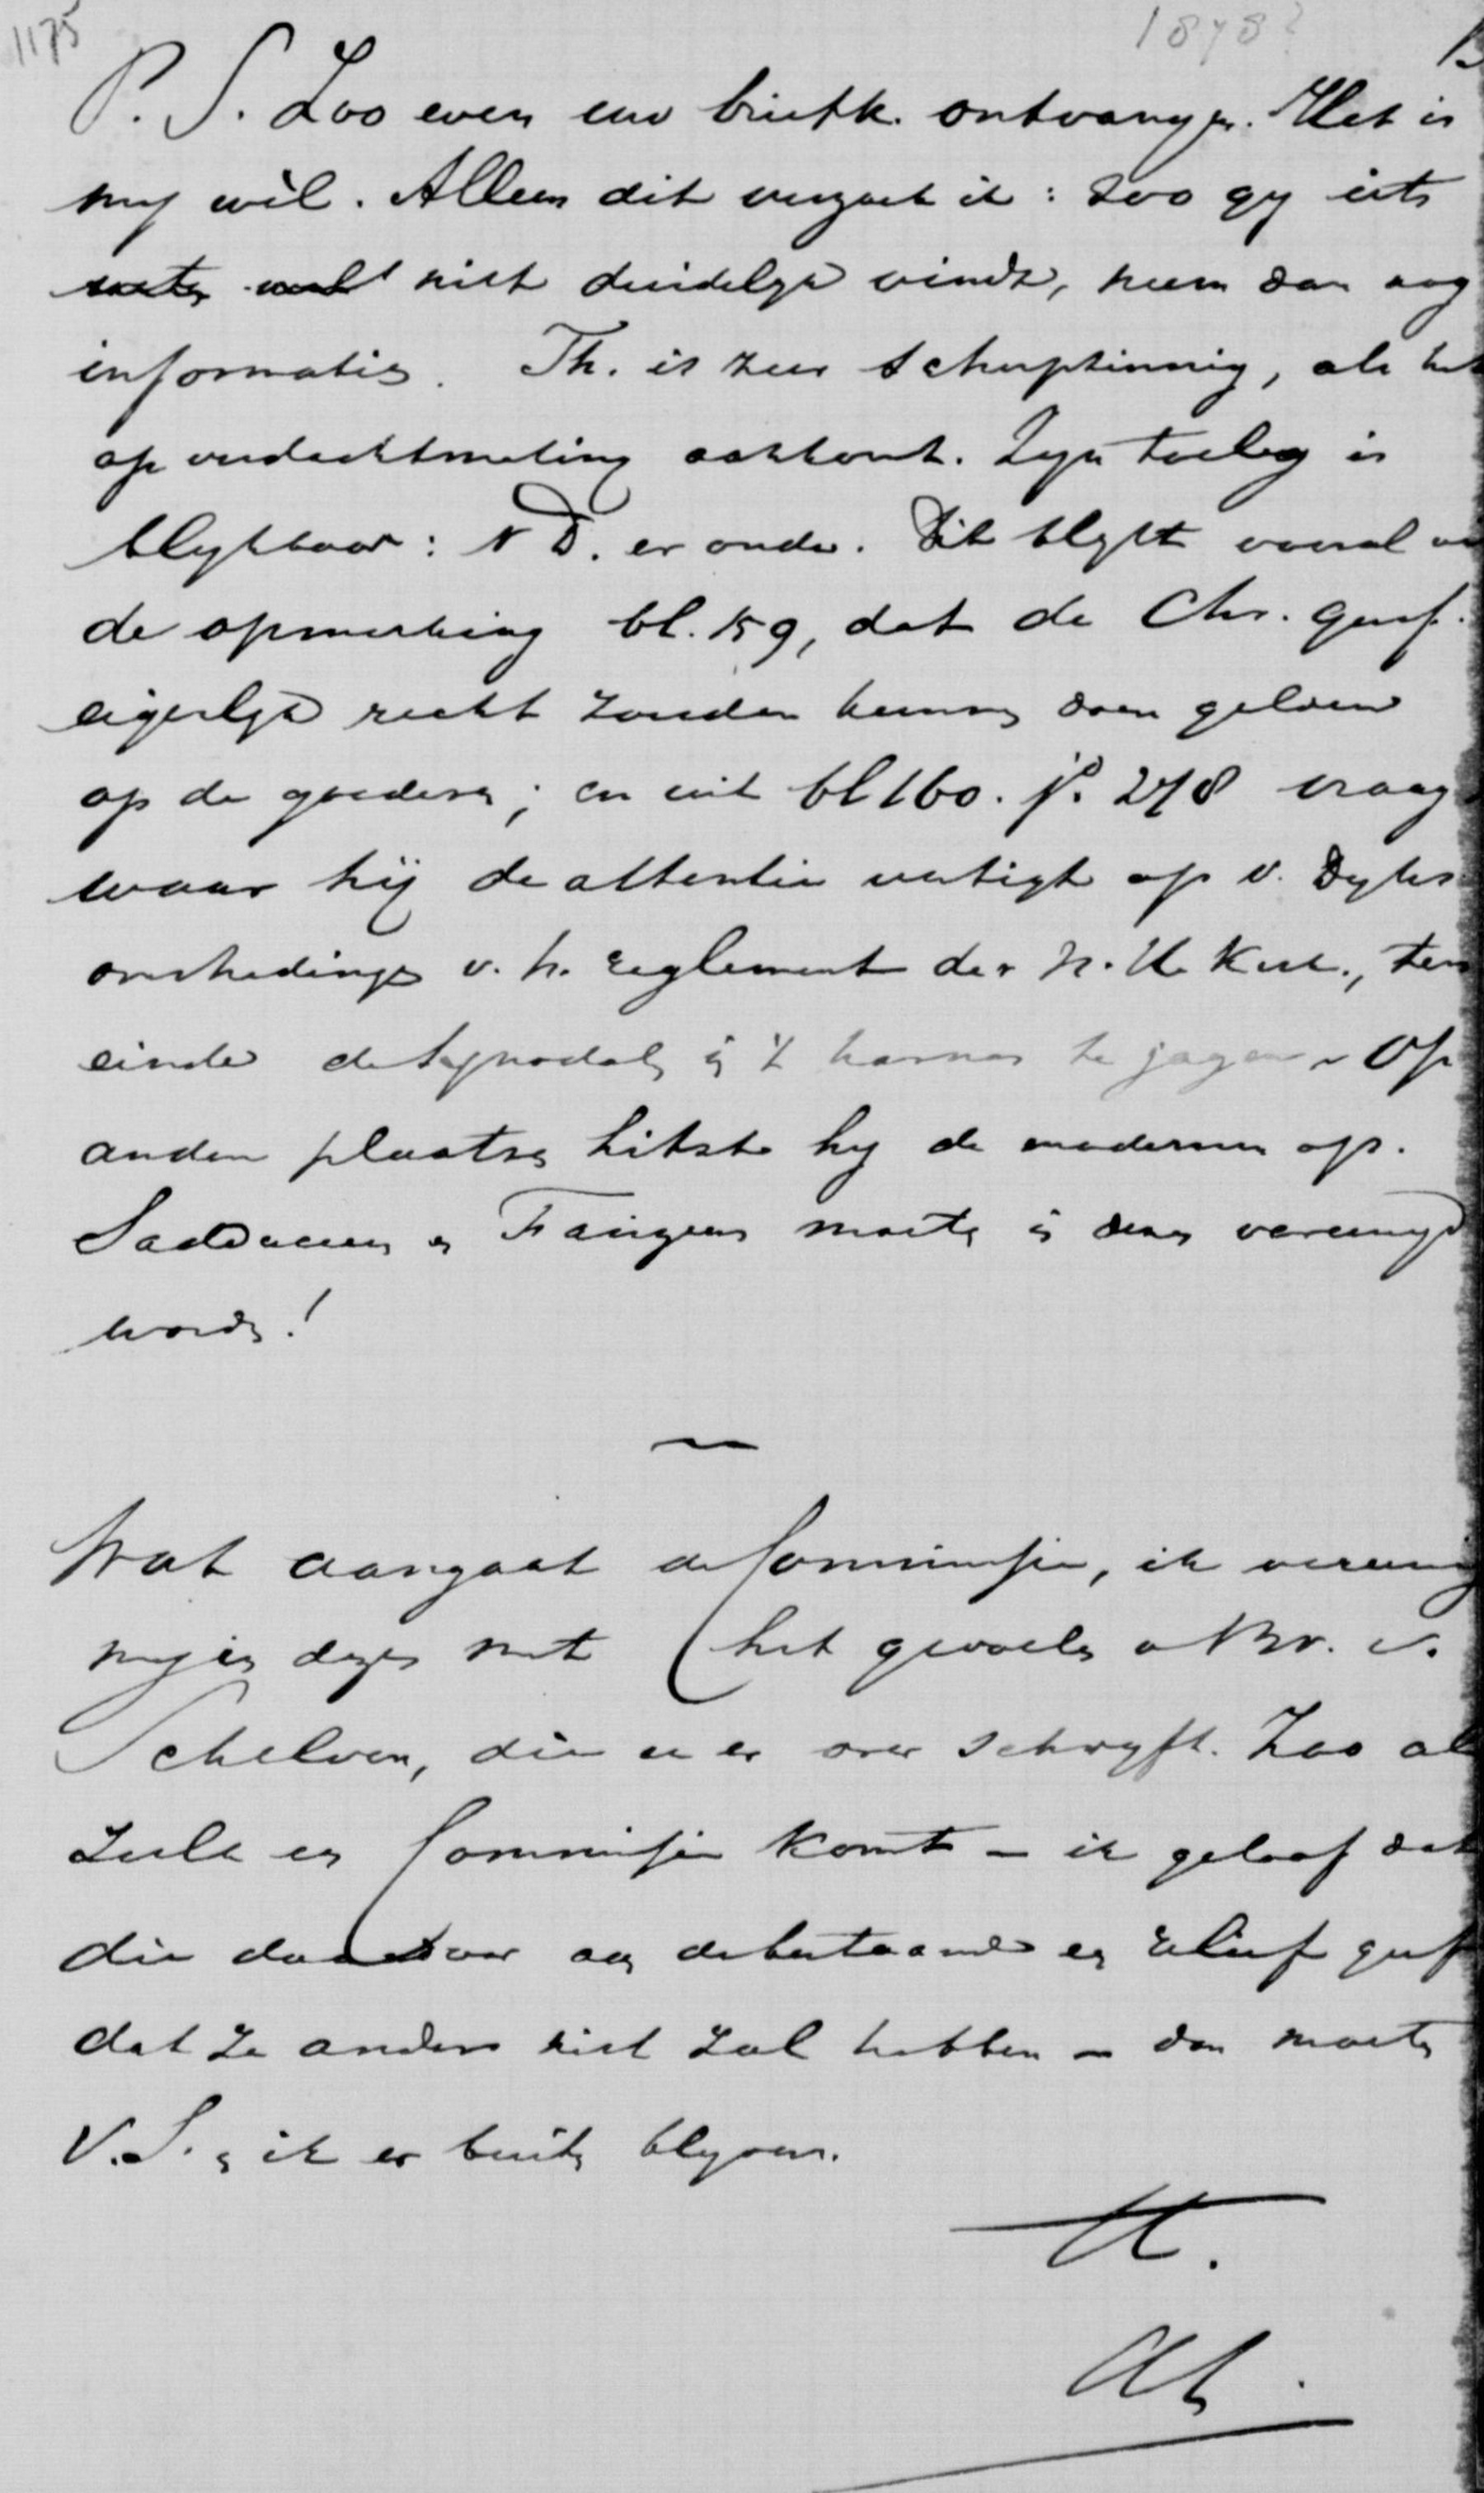 1175
1878?
P. S. Zoo even uw briefk. ontvangen. Het is
my wèl. Alleen dit verzoek ik: zoo gy iets
niet duidelyk vindt, neem dan nog
informatie. Th. is zeer scherpzinnig, als het
op verdachtmaking aankomt. Zyn toeleg is
blykbaar: N D. er onder. Dit blykt vooral uit
de opmerking bl. 159, dat de Chr. geref.
eigenlyk recht zouden kunnen doen gelden
op de goederen; en uit bl 160. jo. 278 vraag
waar hij de attentie vestigt op v. Dyks
v. h. reglement der N. H. Kerk., ten
einde de synodalen in 't harnas te jagen. Op
andere plaatsen hitst hy de modernen op.
Sadduceen en Farizeen moeten in dezen vereenigd
worden!
Wat aangaat de Commissie, ik vereenig
my in dezen met het gevoelen v Br. v.
Schelven, die u er over schryft. Zoo als
zulk een Commissie komt – ik geloof dat
die daardoor aan de bestaande een relief geeft
dat ze anders niet zal hebben – dan moeten
V. S. en ik er buiten blyven.
tt.